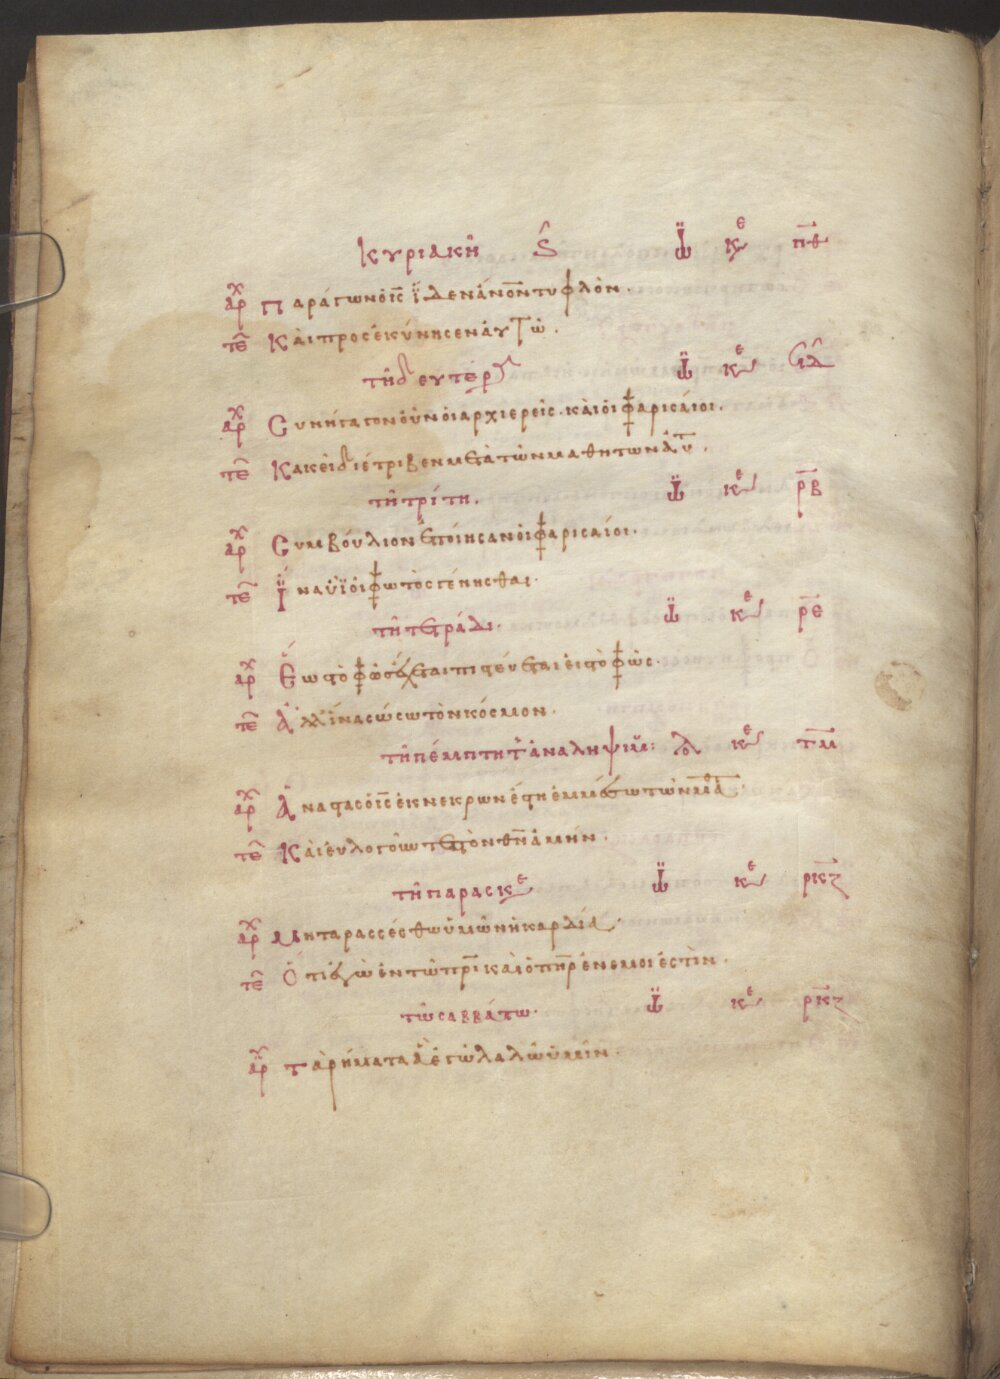 Κυριακῆ ς̂ ἰω κε πθ
ἀρχ Παράγων ὁ ις ἴδεν ἄνον τυφλὸν·
τε Καὶ προσεκύνησεν αὐτῶ·
τῆ δευτερ ἰω κε
ἀρχ Συνήγαγον οὖν οἱ ἀρχιερεῖς καὶ οἱ φαρισαίοι·
τε Κακεὶ διέτριβεν μετὰ τῶν μαθητων αυ·
τῆ τρίτη· ἰω κε ρβ
ἀρχ Συμβούλιον ἐποίησαν οἱ φαρισαίοι·
τε ἵνα ὑϊοὶ φωτὸς γένησθαι·
τῆ τετράδι· ἰω κε ρε
ἀρχ Ἕως τὸ φῶς ἔχεται πιστεύεται εἰς τὸ φῶς·
τε Ἀλλ ἵνα σώσω τὸν κόσμον·
τῆ πέμπτη τ ἀναληψιμ: κε τμ
ἀρχ Ἀναστας ὁ ις ἐκ νεκρων ἔστη ἐμμέσω τῶν μαθ·
τε Καὶ ἐυλογοῦντες τὸν θν ἀμήν·
τῆ παρασκε ἰω κε ρκζ
ἀρχ Μη ταρασσέσθω ὑμῶν ἡ καρδία·
τε Ὅτι ἐγὼ ἐν τῶ πρι και ὁ πηρ ἐν εμοι ἐστὶν·
τῶ σαββάτω· ἰω κε ρκζ
ἀρχ Τὰ ρήματα ἃ ἐγὼ λαλῶ ὑμῖν·